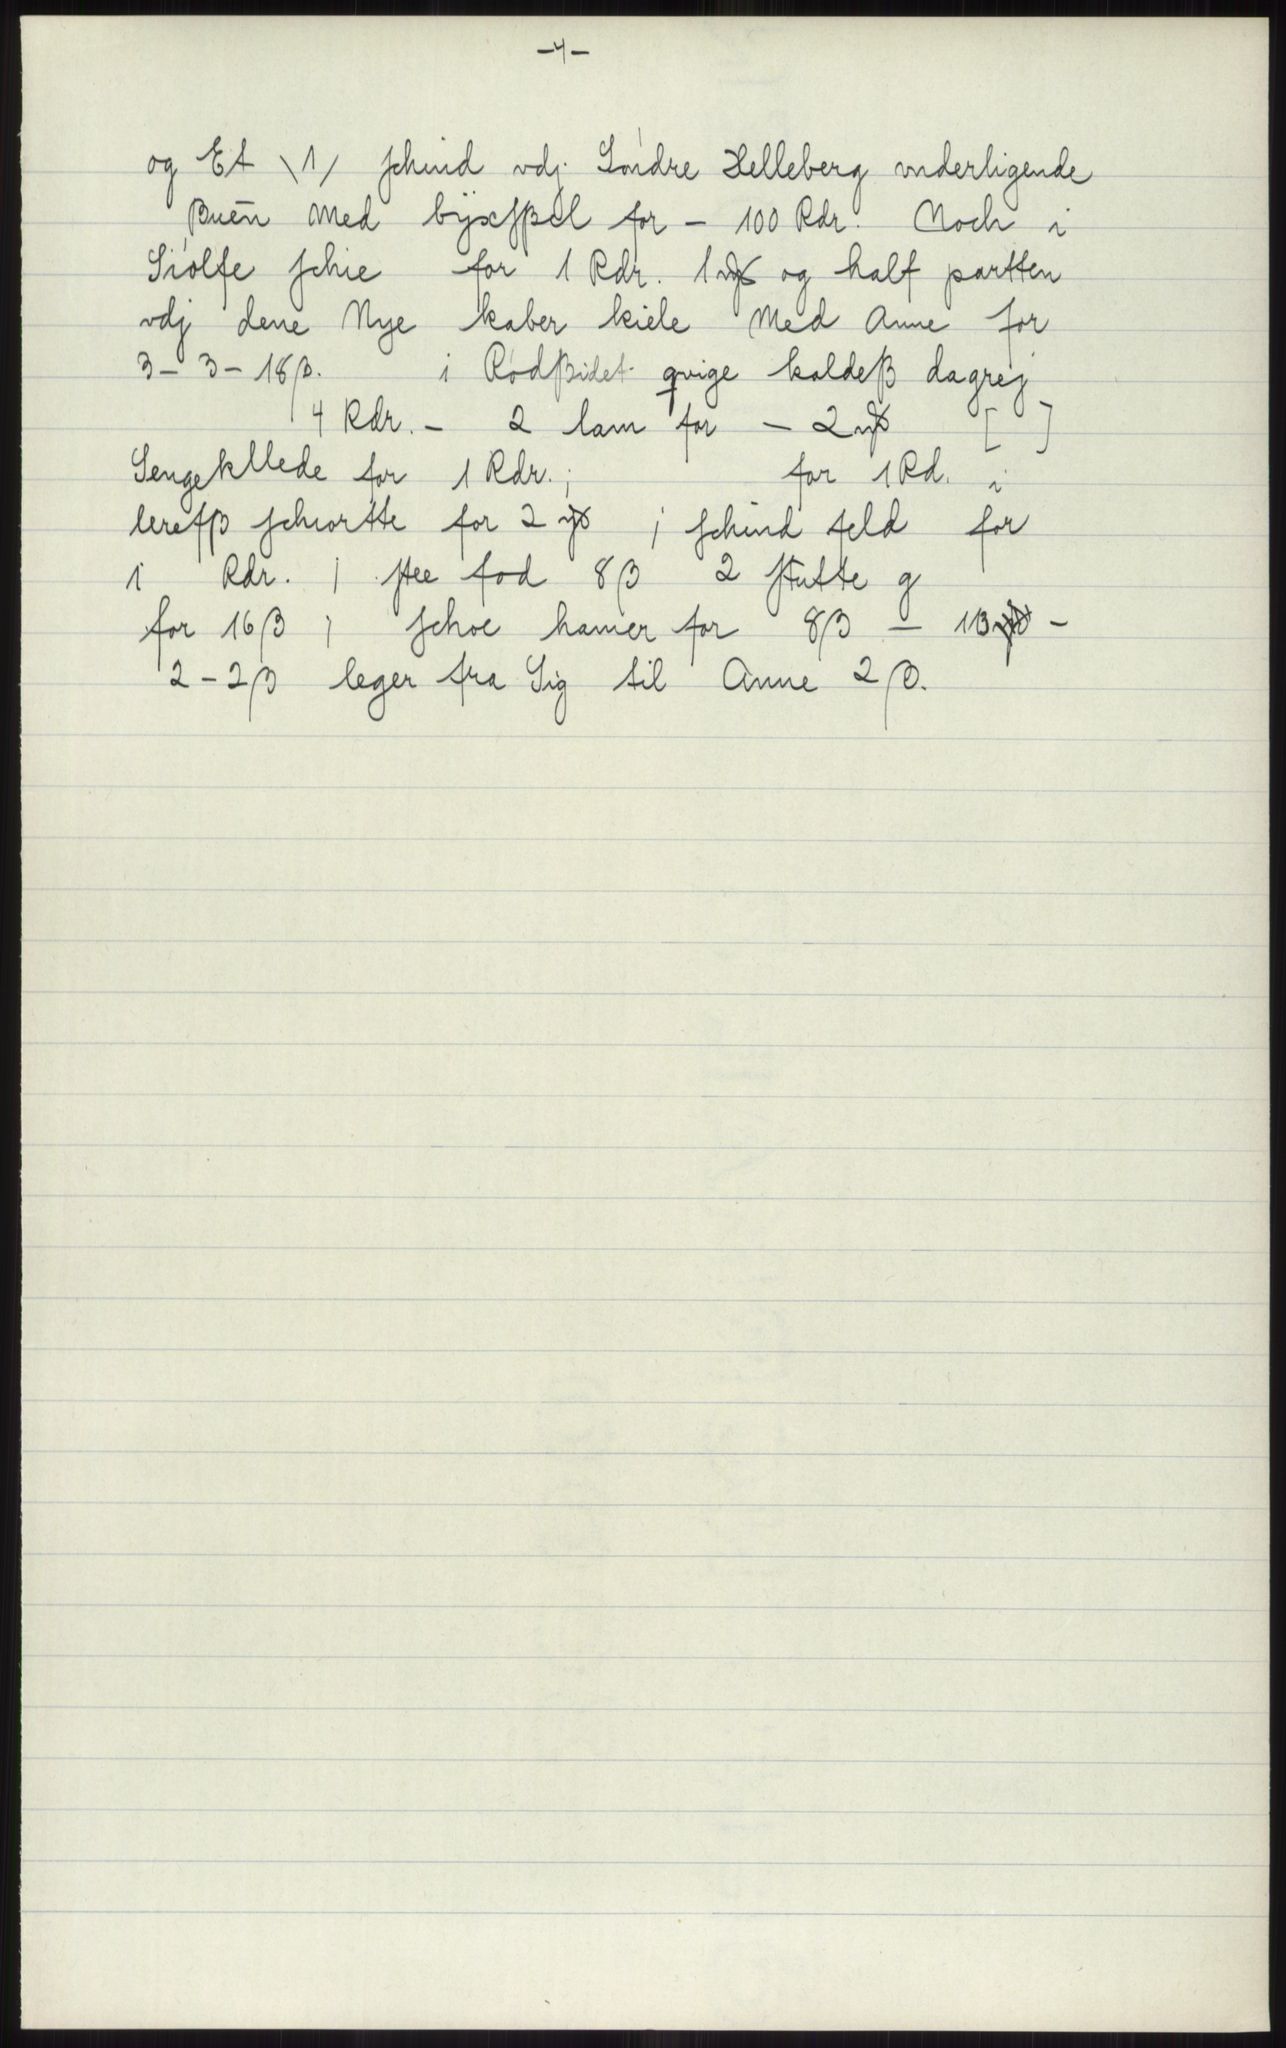 -4-
og Et \1/ schind vdj Søndre Helleberg vnderligende
Buen med byxspel for - 100 Rdr. Noch i
Siølfe schie for 1 Rdr. 1 og half partten
vdj dene Nye kaber kiele Med Anne for
3 - 3 - 18 β. i Rødßidet qvige koldeß dagrej
4 Rdr. - 2 lam for - 2 [ ]
Sengekllede for 1 Rdr. ; for 1 Rd. i
lerefß schiortte for 2 j schind feld for
i Rdr. j stee fad 8 β 2 stutte g
for 16 β j schoe hamer for 8 β - 113 -
2 - 2 β leger fra Sig til Anne 2 β.